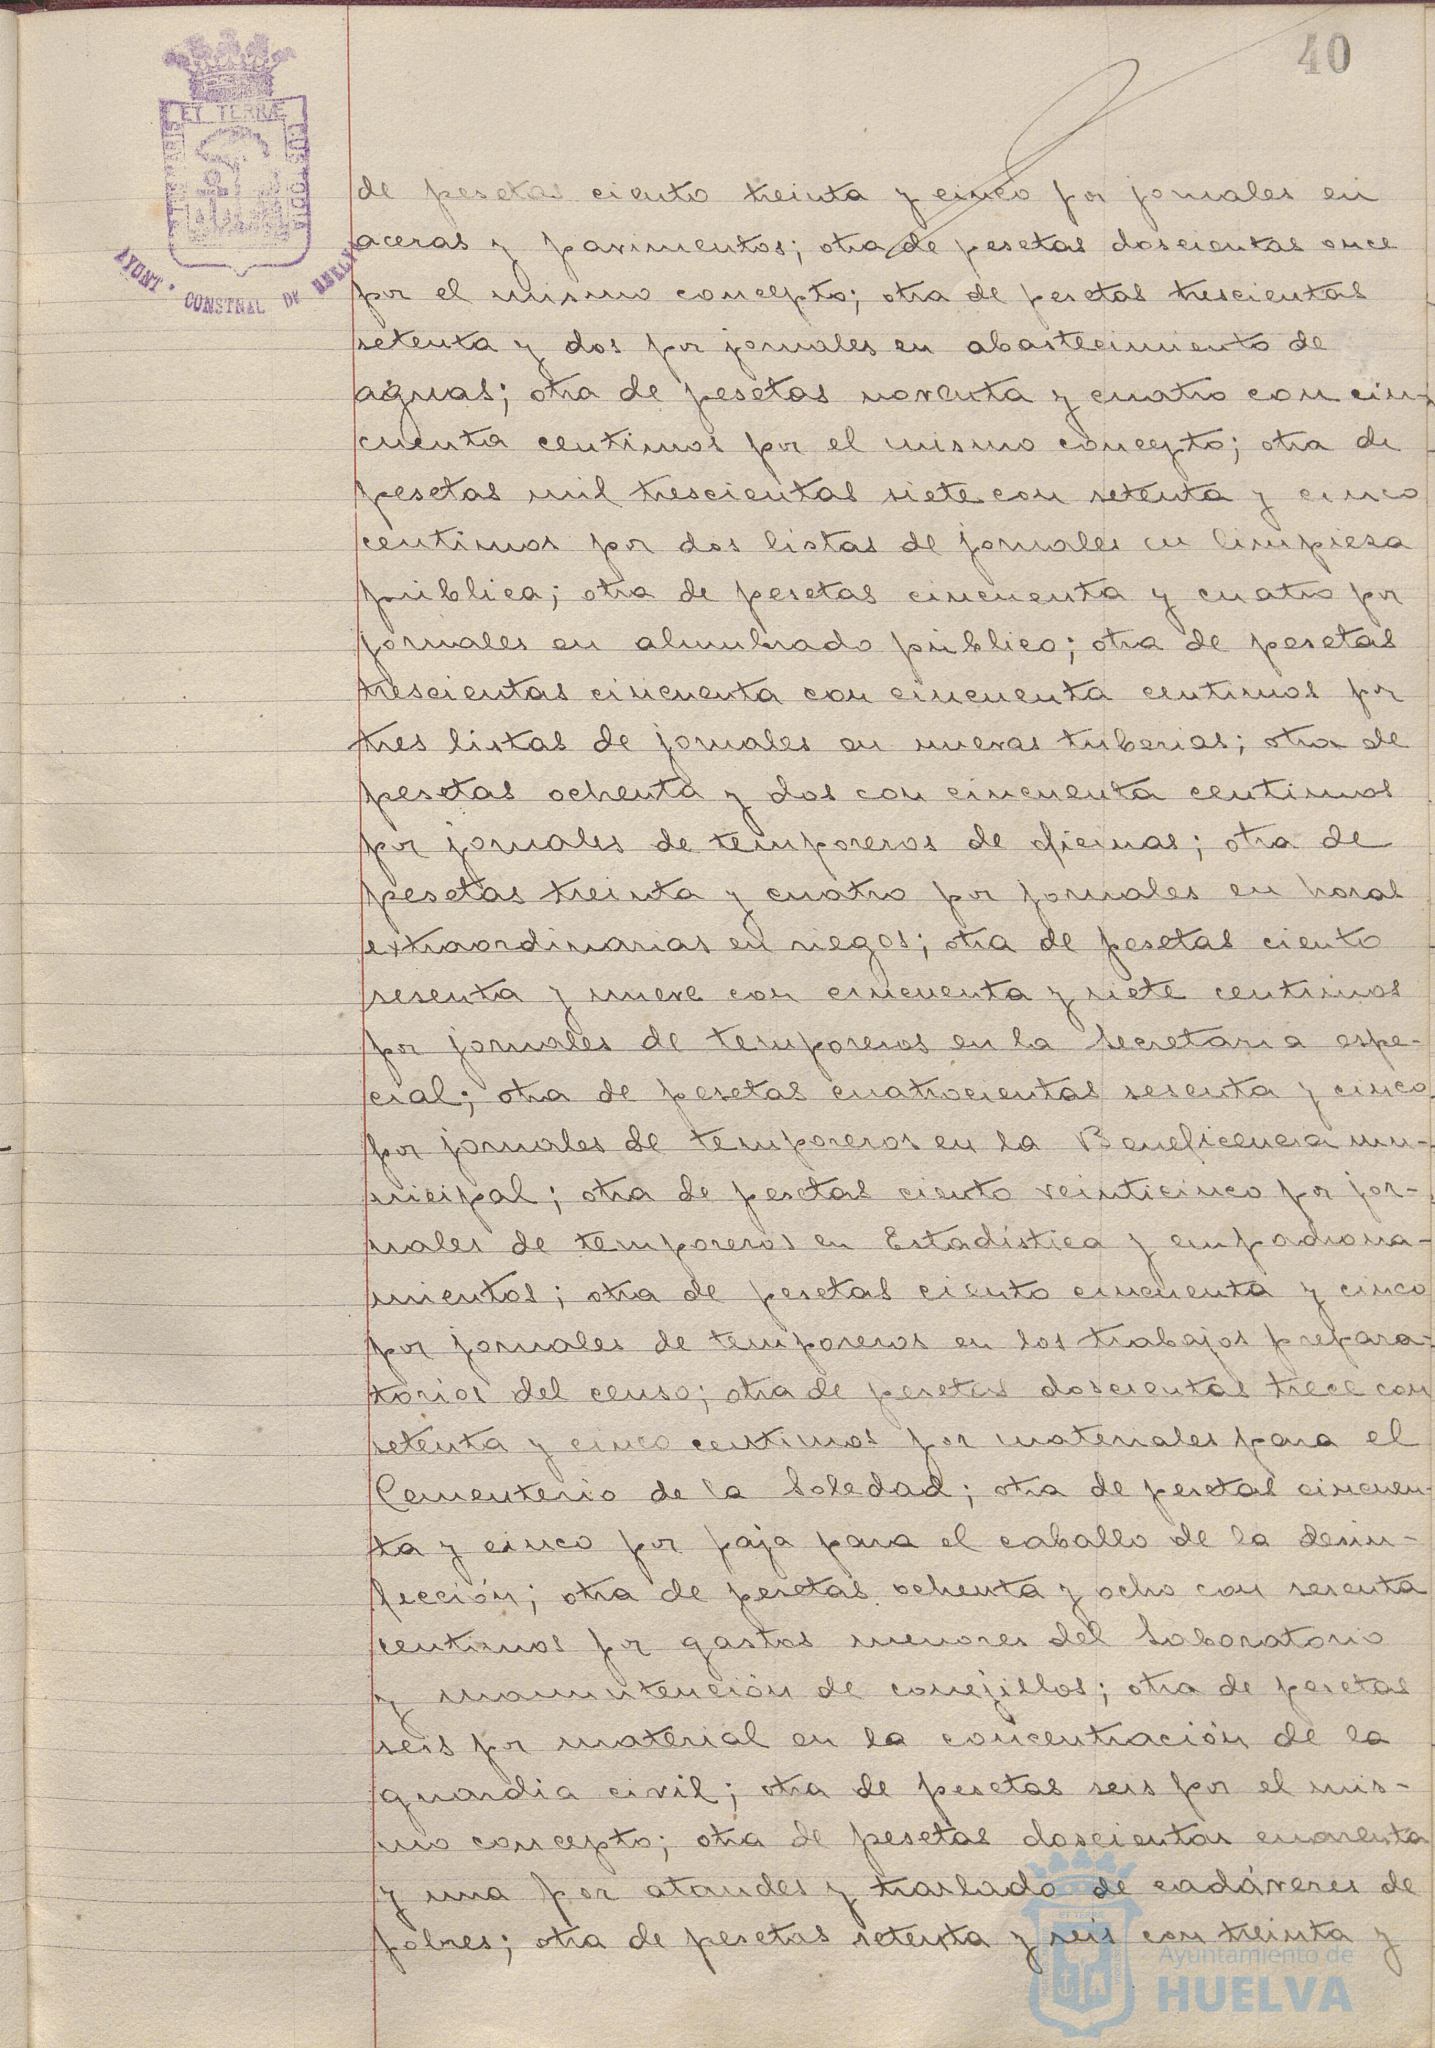 40
ET TERRÆ
AYUNT. CONSTNAL DE HUELVA
de pesetas ciento treinta y cinco por jornales en
aceras y pavimentos; otra de pesetas doscientas once
por el mismo concepto; otra de pesetas trescientas
setenta y dos por jornales en abastecimiento de
aguas; otra de pesetas noventa y cuatro con cin-
cuenta centimos por el mismo concepto; otra de
pesetas mil trescientas siete con setenta y cinco
centimos por dos listas de jornales en limpiesa
pública; otra de pesetas cincuenta y cuatro por
jornales en alumbrado público; otra de pesetas
trescientas cincuenta con cincuenta centimos por
tres listas de jornales en nuevas tuberias; otra de
pesetas ochenta y dos con cincuenta centimos
por jornales de temporeros de oficinas; otra de
pesetas treinta y cuatro por jornales en horas
extraordinarias en riegos; otra de pesetas ciento
sesenta y nueve con cincuenta y siete centimos
por jornales de temporeros en la Secretaria espe-
cial; otra de pesetas cuatrocientas sesenta y cinco
por jornales de temporeros en la Beneficencia mu-
nicipal; otra de pesetas ciento veinticinco por jor-
nales de temporeros en Estadística y empadrona-
mientos; otra de pesetas ciento cincuenta y cinco
por jornales de temporeros en los trabajos prepara-
torios del censo; otra de pesetas doscientas trece con
setenta y cinco centimos por materiales para el
Cementerio de la Soledad; otra de pesetas cincuen-
ta y cinco por paja para el caballo de la desin-
fección; otra de pesetas ochenta y ocho con sesenta
centimos por gastos menores del Laboratorio
y manutención de conejillos; otra de pesetas
seis por material en la concentración de la
guardia civil; otra de pesetas seis por el mis-
mo concepto; otra de pesetas doscientas cuarenta
y una por ataudes y traslado de cadáveres de
pobres; otra de pesetas setenta y seis con treinta y
Ayuntamiento de
HUELVA